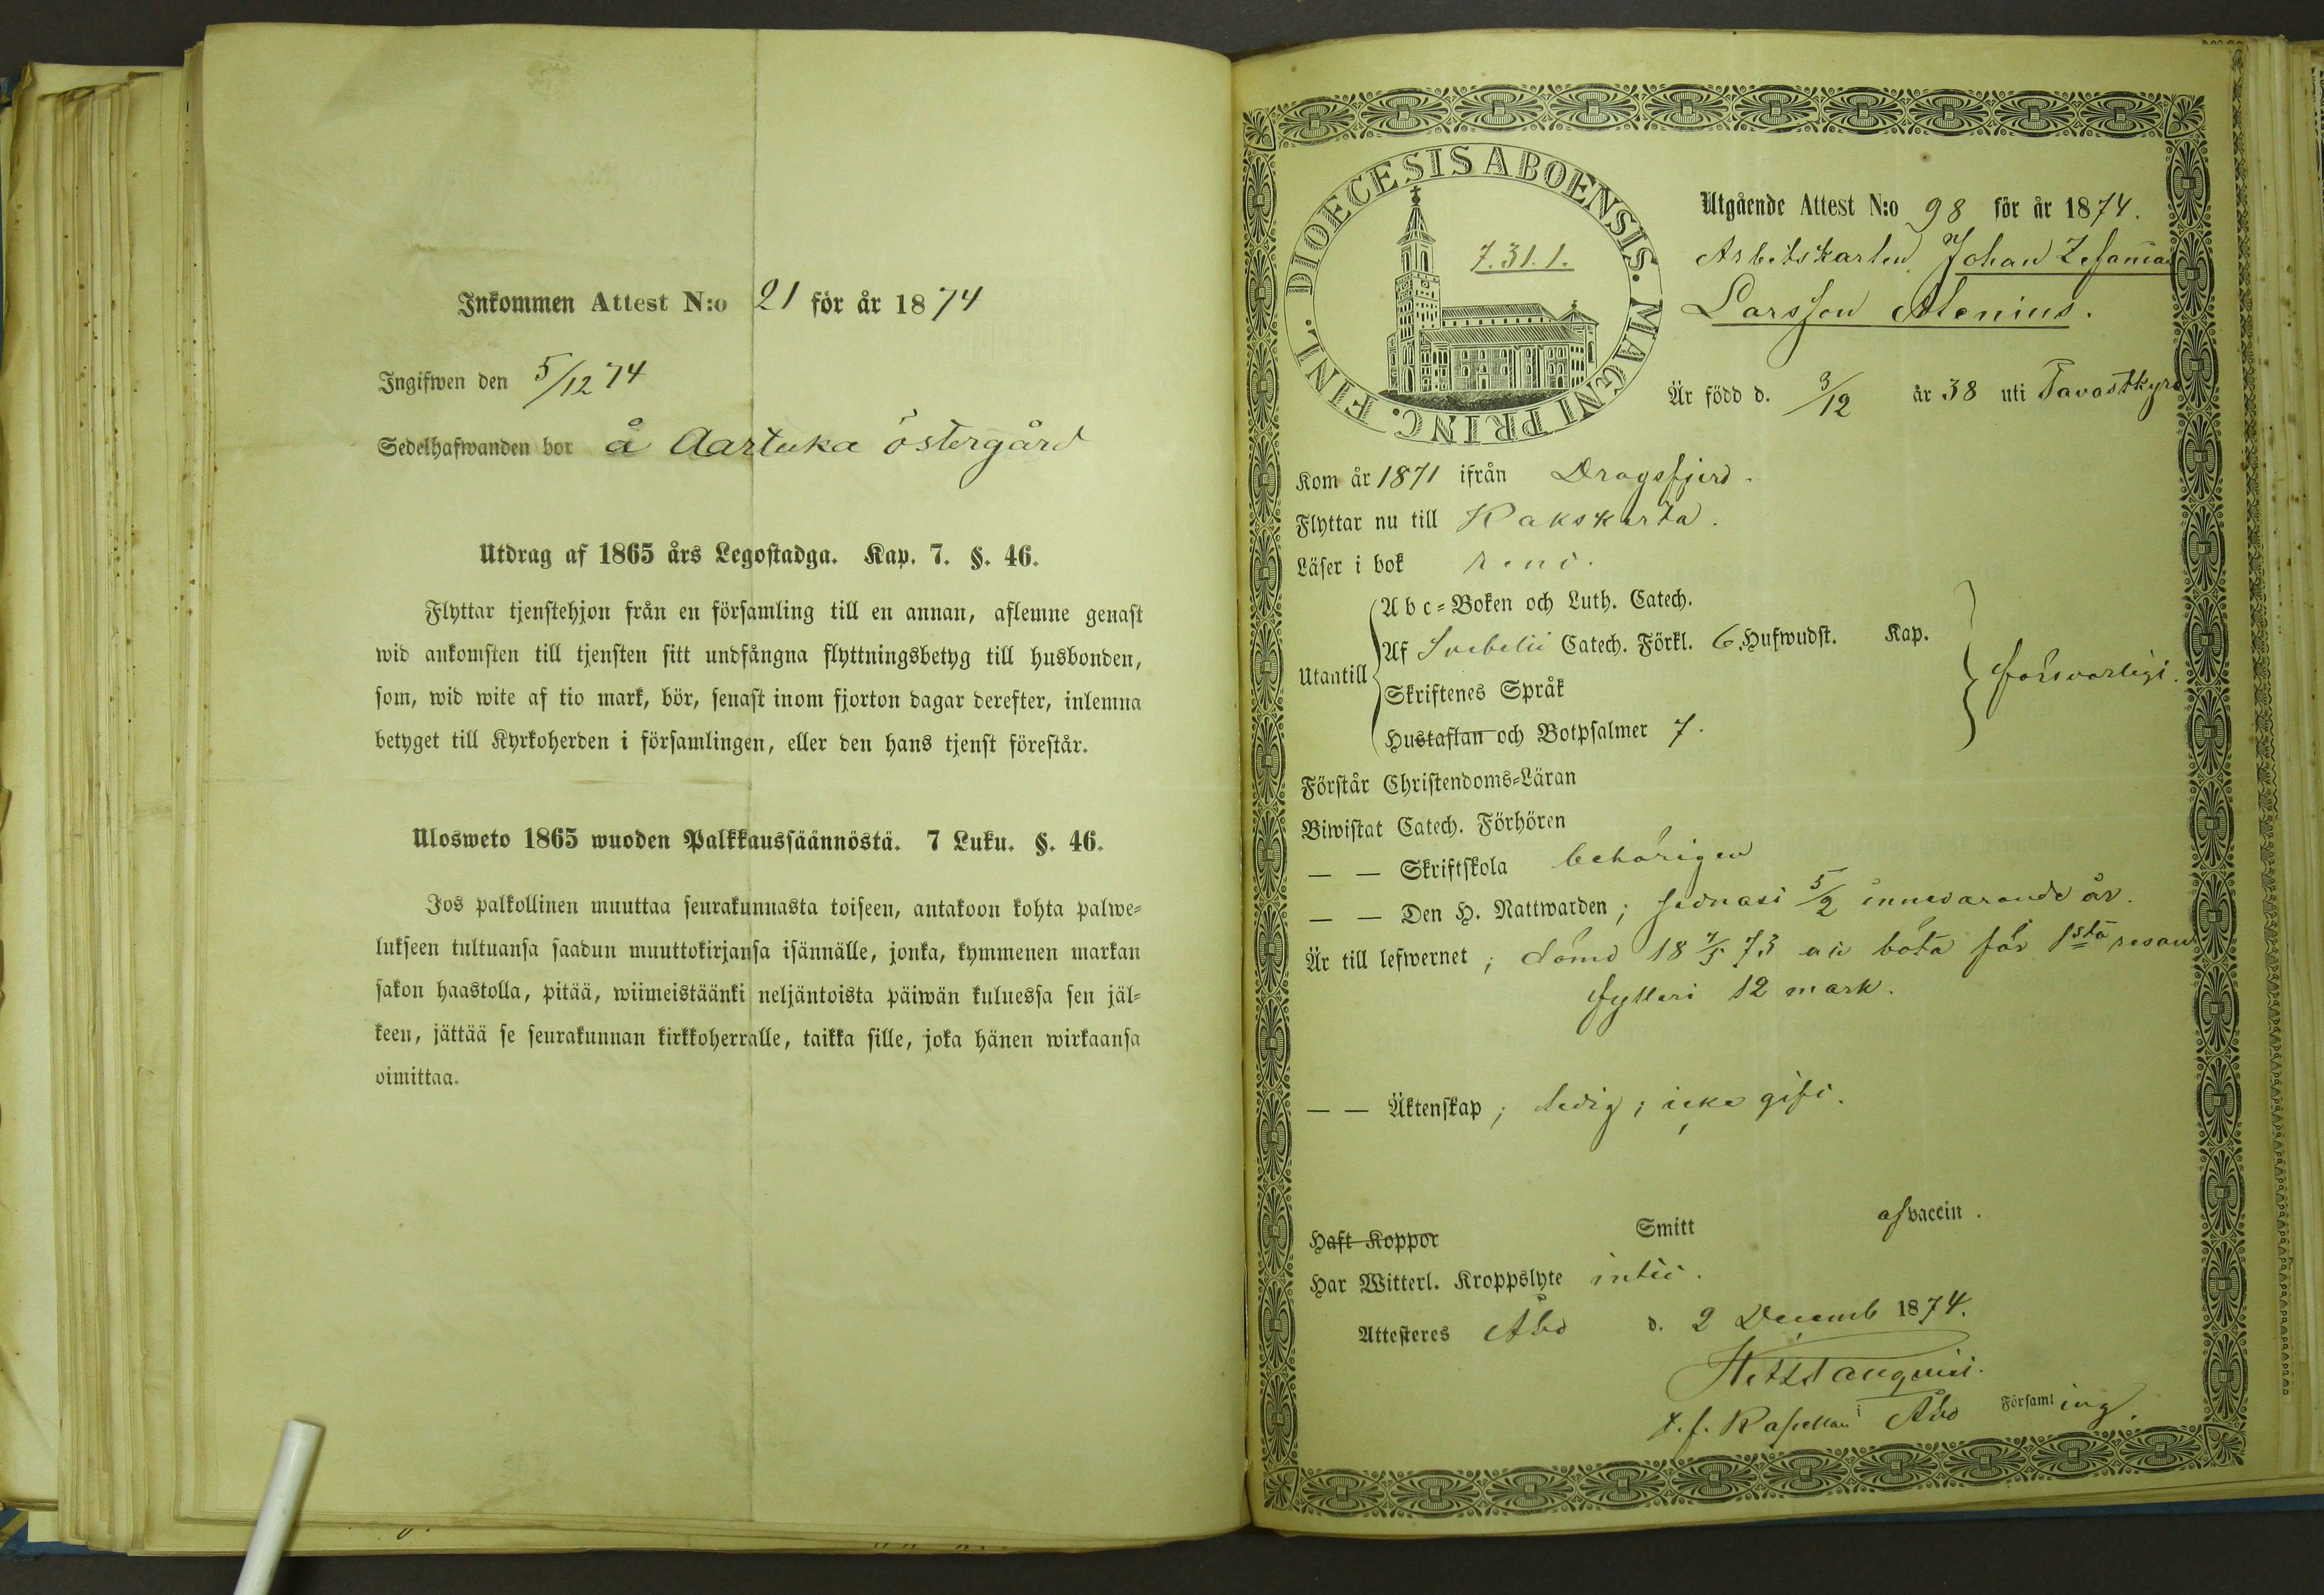 Inkommen Attest N:o 21 för år 1874
Ingifwen den 5/12 74
Sedelhafwanden bor å Aartuka östergård
Utdrag af 1865 års Legostadga. Kap. 7. §. 46.
Flyttar tjenstehjon från en församling till en annan, aflemne genast
wid ankomsten till tjensten sitt undfångna flyttningsbetyg till husbonden,
som, wid wite af tio mark, bör, senast inom fjorton dagar derefter, inlemna
betyget till Kyrkoherden i församlingen, eller den hans tjenst förestår.
Ulosweto 1865 wuoden Palkkaussäännöstä. 7 Luku. §. 46.
Jos palkollinen muuttaa seurakunnasta toiseen, antakoon kohta palwe-
lukseen tultuansa saadun muuttokirjansa isännälle, jonka, kymmenen markan
sakon haastolla, pitää, wiimeistäänki neljäntoista päiwän kuluessa sen jäl-
keen, jättää se seurakunnan kirkkoherralle, taikka sille, joka hänen wirkaansa
oimittaa.
DIOECESIS ABOENSIS. MAGNI PRINC. FINL.
7.31.1.
Utgående Attest N:o 98 för år 1874.
Arbetskarlen Johan Zefanias
Larsson Alenius.
Är född d. 3/12 år 38 uti Tavastkyro
Kom år 1871 ifrån Dragsfjerd.
Flyttar nu till Kakskerta.
Läser i bok rent.
Utantill
Abc-Boken och Luth. Catech.
Af Svebelii Catech. Förkl. 6 Hufwudst. Kap.
Skriftenes Språk
Hustaflan och Botpsalmer 7.
försvarligt.
Förstår Christendoms-Läran
Biwistat Catech. Förhören
— — Skriftskola behörigen
— — Den H. Nattwarden; sednast 5/2 innevarande år.
Är till lefwernet; dömd 18 7/5 73 att böta för 1sta resan
fylleri 12 mark.
— — Äktenskap; ledig; icke gift.
Haft Koppor Smitt af vaccin.
Har Witterl. Kroppslyte intet.
Attesteres Åbo d. 2 Decemb 1874.
t.f. Kapellan i Åbo Församling.